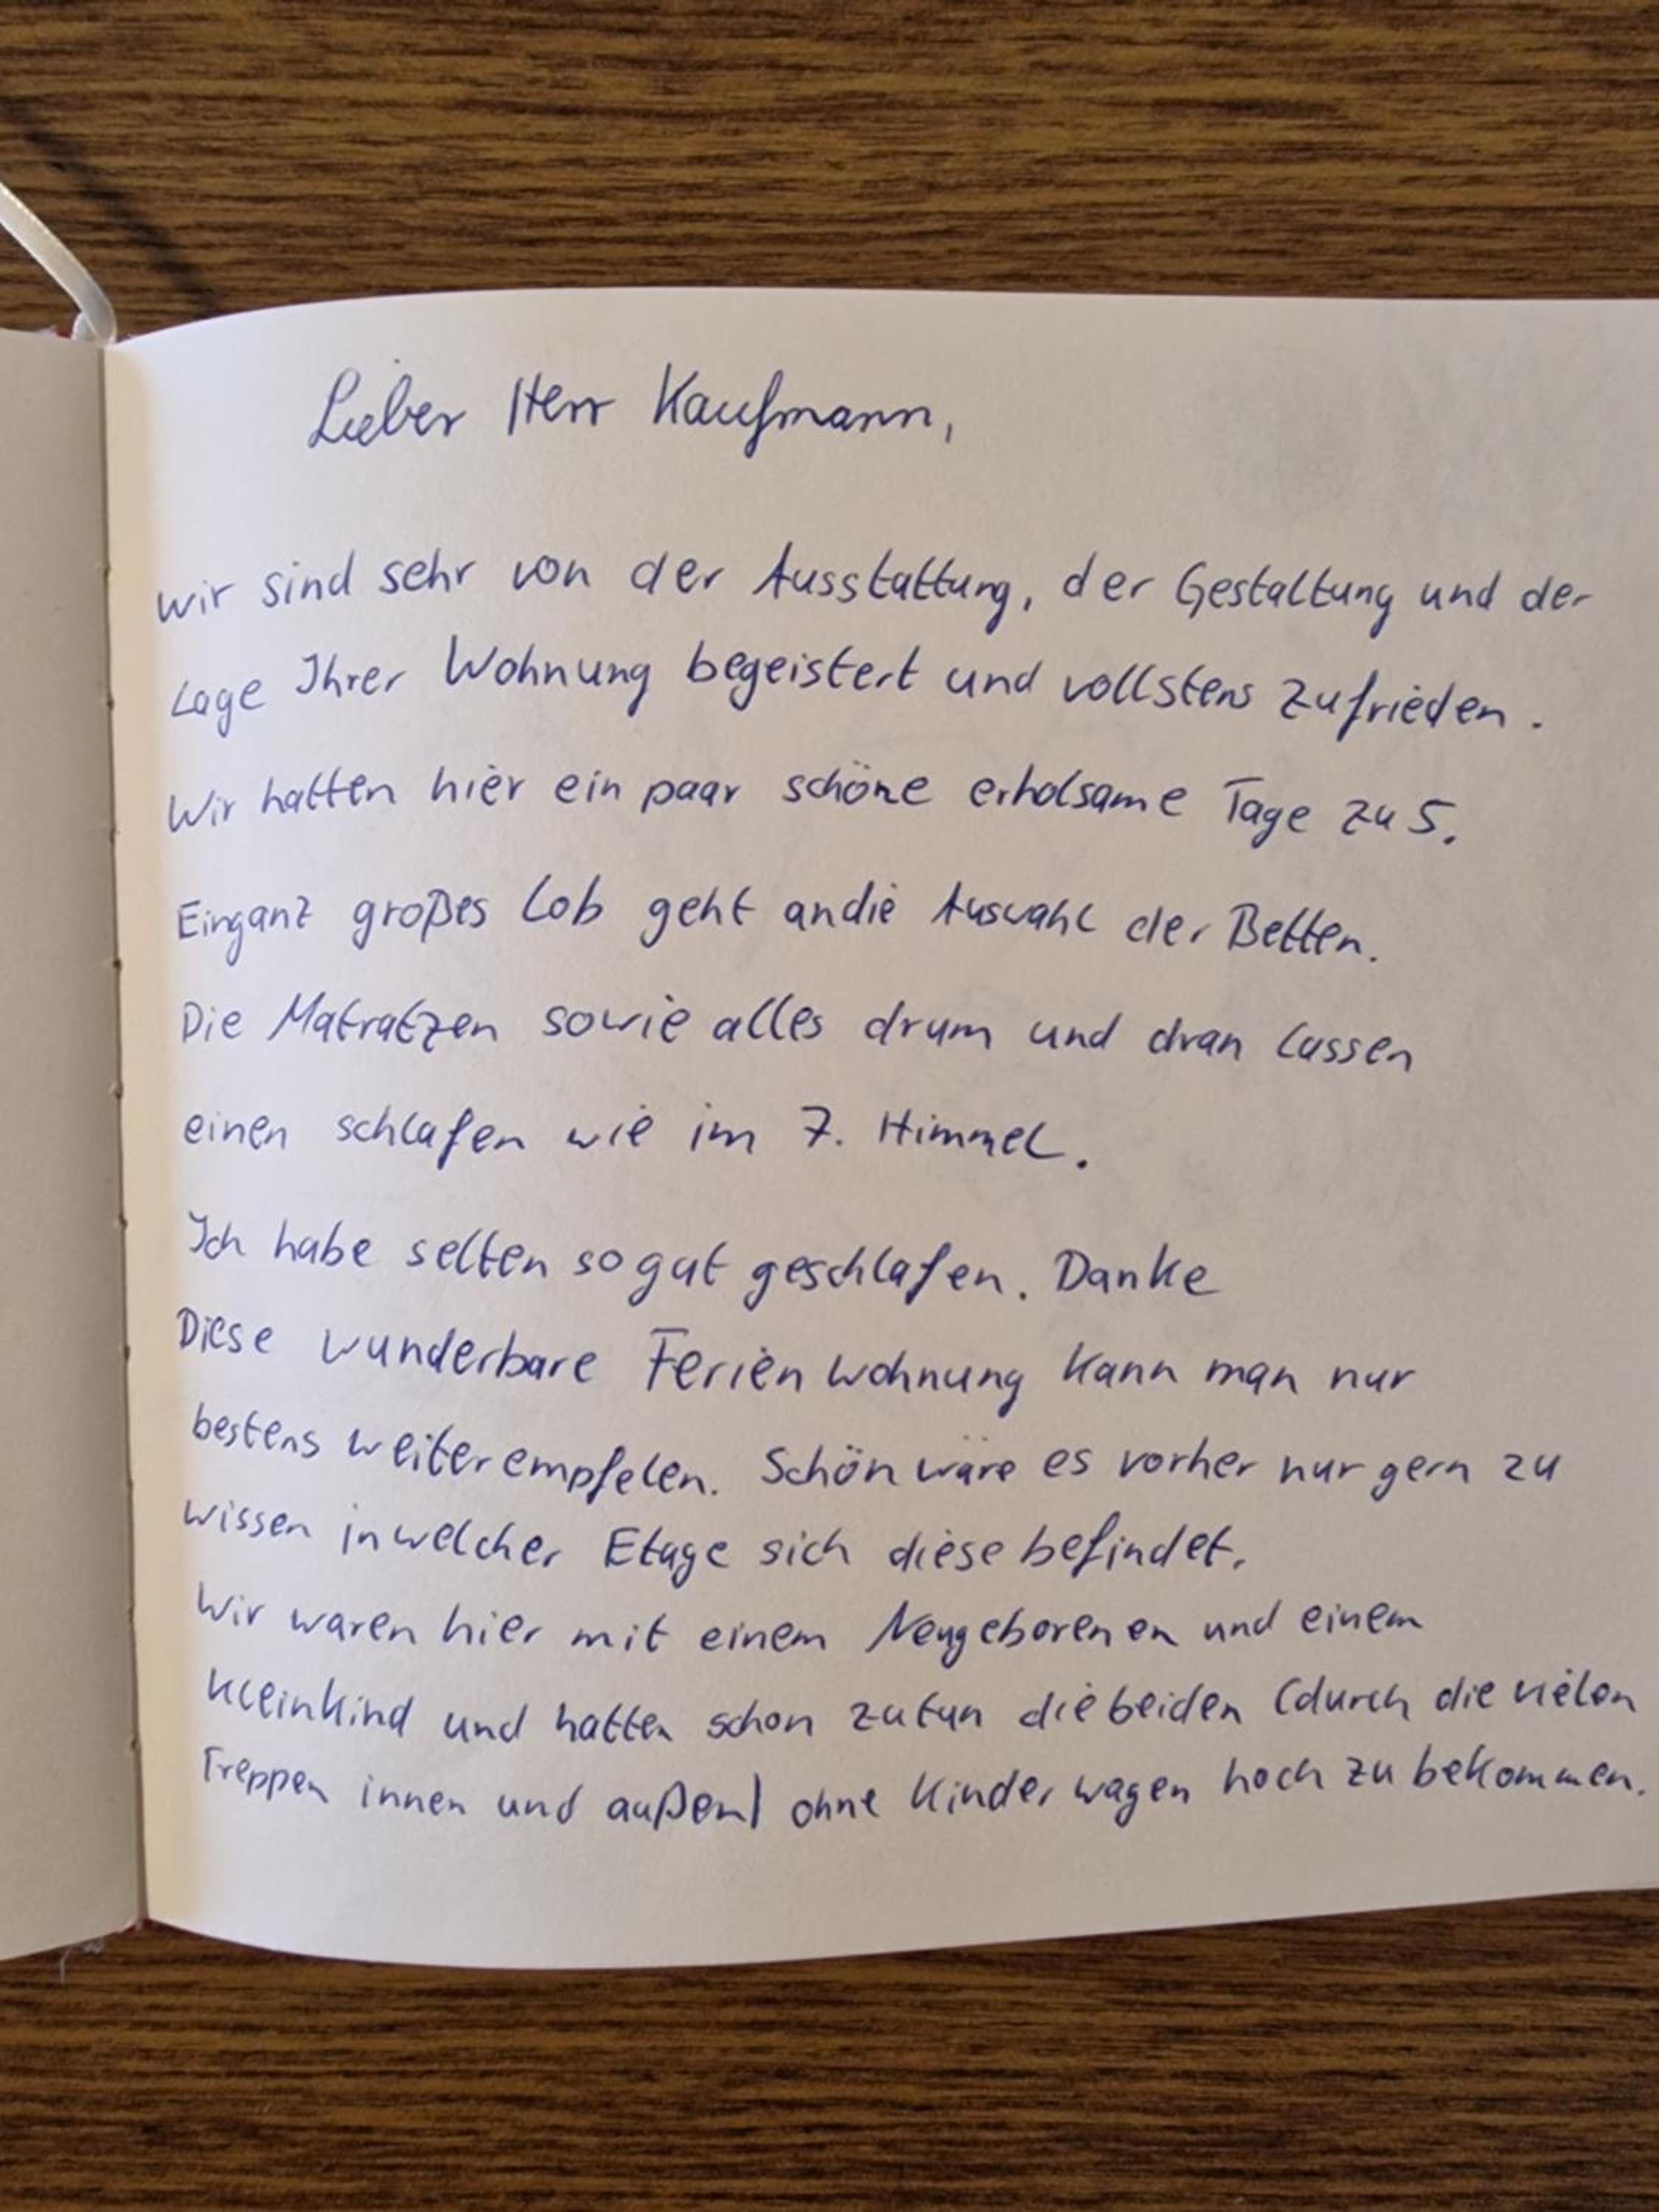 Lieber Herr Kaufmann,
wir sind sehr von der Ausstattung, der Gestaltung und der
Lage Ihrer Wohnung begeistert und vollstens zufrieden.
Wir hatten hier ein paar schöne erholsame Tage zu 5.
Ein ganz großes Lob geht an die Auswahl der Betten.
Die Matratzen sowie alles drum und dran lassen
einen schlafen wie im 7. Himmel.
Ich habe selten so gut geschlafen. Danke
Diese wunderbare Ferienwohnung kann man nur
bestens weiterempfelen. Schön wäre es vorher nur gern zu
wissen in welcher Etage sich diese befindet.
Wir waren hier mit einem Neugeborenen und einem
Kleinkind und hatten schon zutun die beiden (durch die vielen
Treppen innen und außen) ohne Kinderwagen hoch zu bekommen.